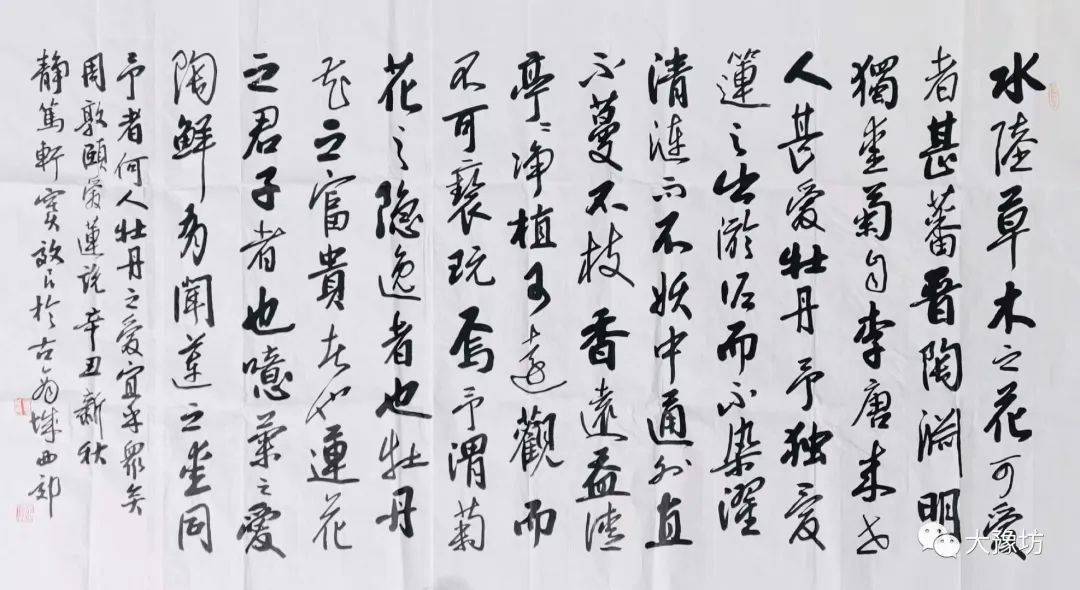 水陸草木之花可愛
者甚蕃晋陶淵明
獨愛菊自李唐来世
人甚愛牡丹予独愛
蓮之出淤泥而不染濯
清涟而不妖中通外直
不蔓不枝香遠益清
亭〻净植可遠觀而
不可褻玩焉予謂菊
花之隐逸者也牡丹
花之富貴者也蓮花
之君子者也噫菊之愛
陶鮮有聞蓮之愛同
予者何人牡丹之愛宜乎眾矣
周敦頤愛蓮説辛丑新秋
静篤軒於古城西郊
大豫坊